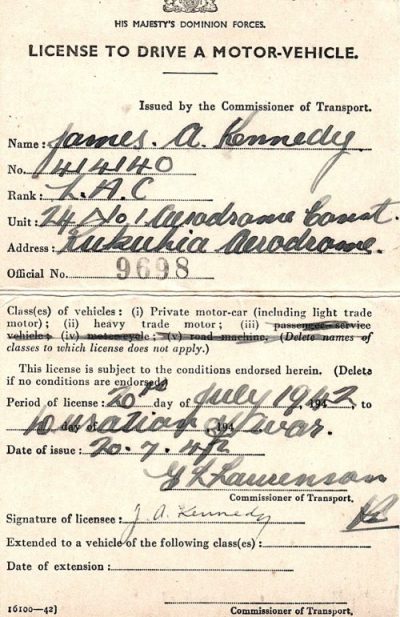 HIS MAJESTY'S DOMINION FORCES.
LICENSE TO DRIVE A MOTOR-VEHICLE.
Issued by the Commissioner of Transport.
Name: James. A. Kennedy
No. 414140
Rank: L.A.C
Unit: 24 No 1 Aerodrome Const.
Address: Rukuhia Aerodrome.
Official No. 9698
Class(es) of vehicles: (i) Private motor-car (including light trade
motor); (ii) heavy trade motor; (iii) passenger-service
vehicle; (iv) motorcycle; (v) road machine. (Delete names of
classes to which license does not apply.)
This license is subject to the conditions endorsed herein. (Delete
if no conditions are endorsed
Period of license: 20th day of July 1942, 194 2, to
Duration of War. day of , 194
Date of issue: 20.7.42
Commissioner of Transport.
Signature of licensee: J. A. Kennedy
Extended to a vehicle of the following class(es):
Date of extension:
16100—42]
Commissioner of Transport.